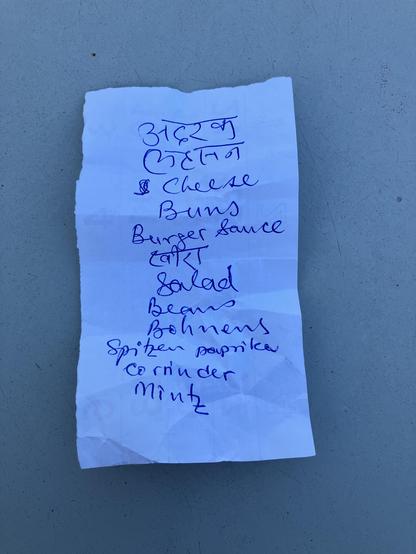 अदरक
लहसन
Cheese
Buns
Burger Sauce
खीरा
Salad
Beans
Bohnens
Spitzen paprika
Corrinder
Mintz